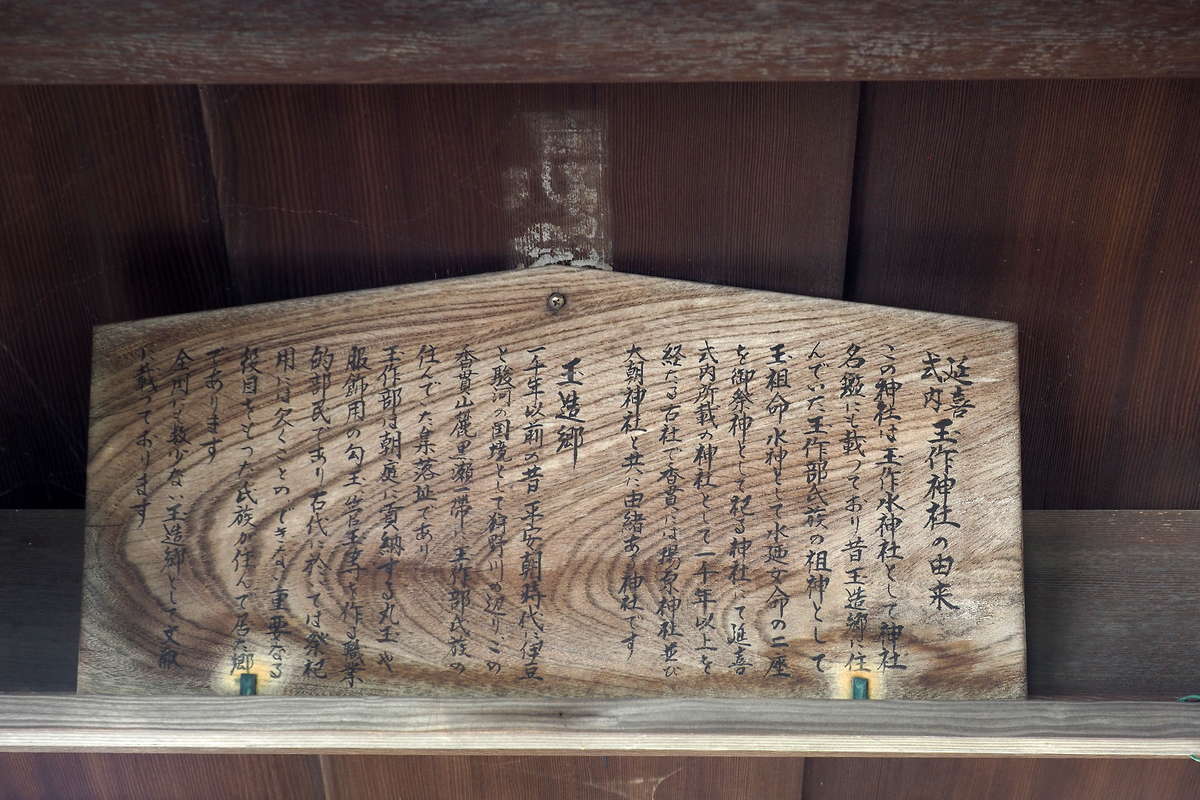 延喜式内 玉作神社の由来
この神社は玉作水神社として神社
名鑑にも載つており昔玉造郷に住
んでいた玉作部氏族の祖神として
玉祖命 水神として水廼女命の二座
を御祭神として祀る神社にて延喜
式内所載の神社として一千年以上を
経たる古社で香貫には楊原神社並び
大朝神社と共に由緒ある神社です
玉造郷
一千年以前の昔平安朝時代伊豆
と駿河の国境として狩野川の辺りこの
香貫山麓黒瀬一帯に玉作部氏族の
住んでゐた集落址であり
玉作部は朝庭に貢納する丸玉や
服飾用の勾玉管玉等を作る職業
的部民であり古代に於ては祭祀
用には欠くことのできない重要なる
役目をもつた氏族が住んで居た郷
であります
全国でも数少ない玉造郷として文献
に載っております